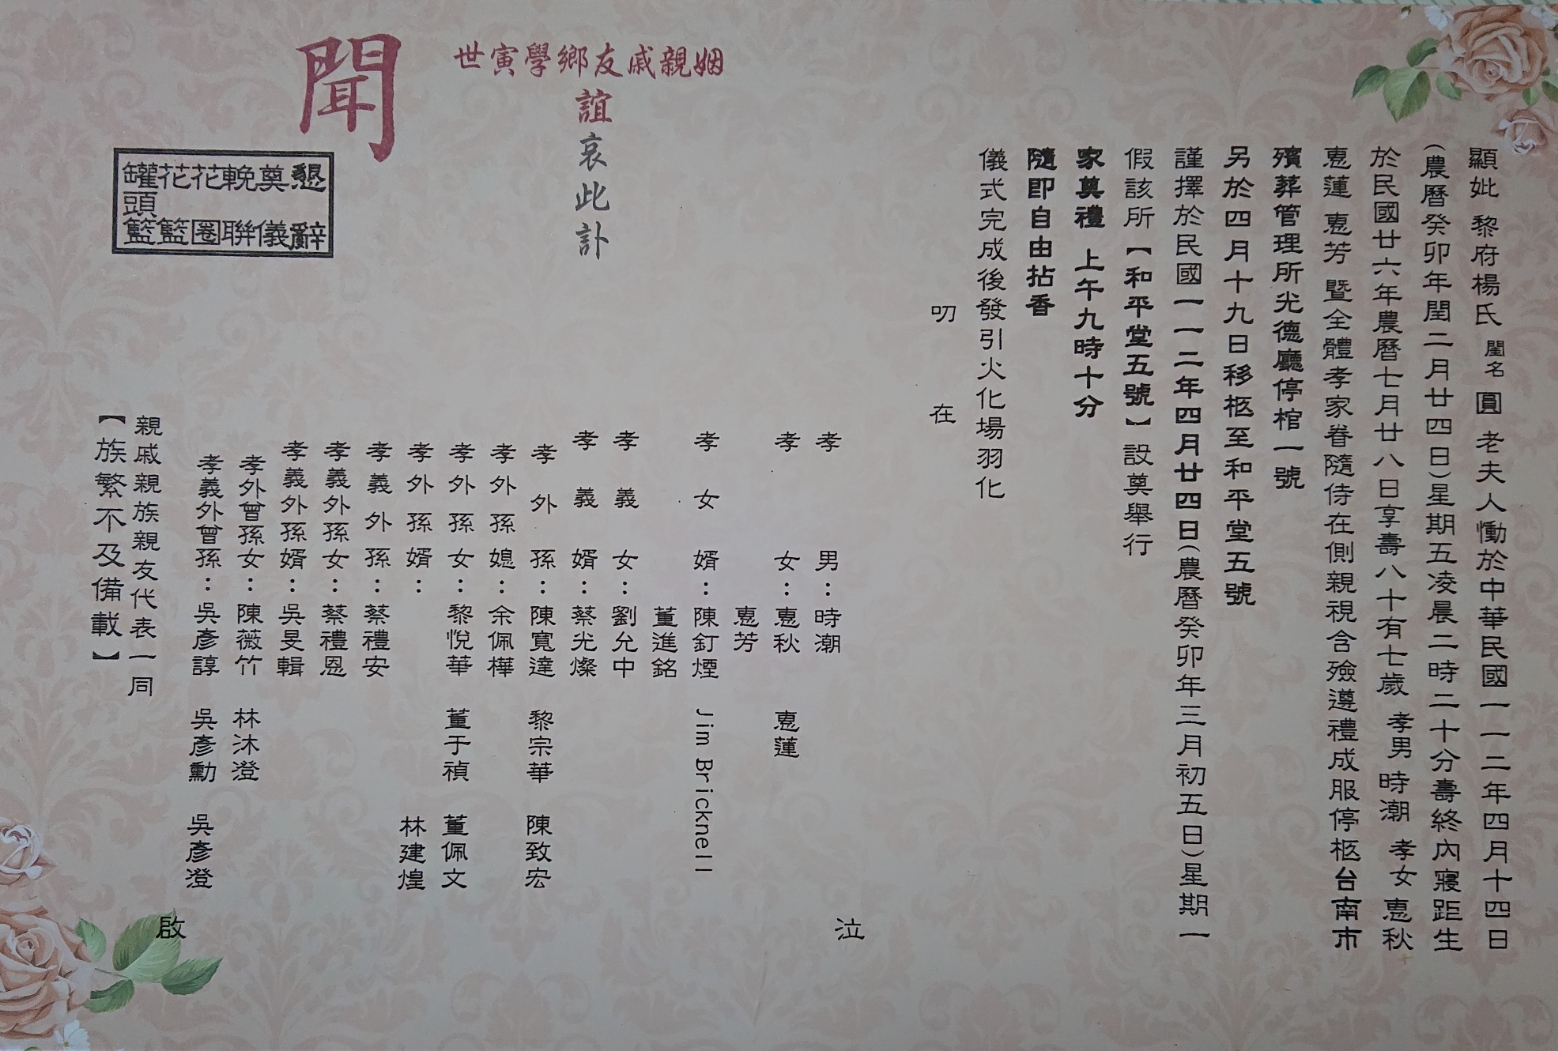 顯妣 黎府楊氏 閨名 圓 老夫人慟於中華民國一一二年四月十四日
(農曆癸卯年閏二月廿四日)星期五凌晨二時二十分壽終內寢距生
於民國廿六年農曆七月廿八日享壽八十有七歲 孝男 時潮 孝女 惠秋
惠蓮 惠芳 暨全體孝家眷隨侍在側親視含殮遵禮成服停柩台南市
殯葬管理所光德廳停棺一號
另於四月十九日移柩至和平堂五號
謹擇於民國一一二年四月廿四日(農曆癸卯年三月初五日)星期一
假該所【和平堂五號】設奠舉行
家奠禮 上午九時十分
隨即自由拈香
儀式完成後發引火化場羽化
叨 在
姻親戚友鄉學寅世
誼
哀此訃
聞
懇辭
奠儀
輓聯
花圈
花籃
罐頭籃
孝男：時潮
孝女：惠秋 惠蓮
惠芳
孝女婿：陳釘煙 Jim Bricknell
董進銘
孝義女：劉允中
孝義婿：蔡光燦
孝外孫：陳寬達 黎宗華 陳致宏
孝外孫媳：余佩樺
孝外孫女：黎悅華 董于禎 董佩文
孝外孫婿： 林建煌
孝義外孫：蔡禮安
孝義外孫女：蔡禮恩
孝義外孫婿：吳旻輯
孝外曾孫女：陳薇竹 林沐澄
孝義外曾孫：吳彥諄 吳彥勳 吳彥澄
泣
親戚親族親友代表一同
啟
【族繁不及備載】